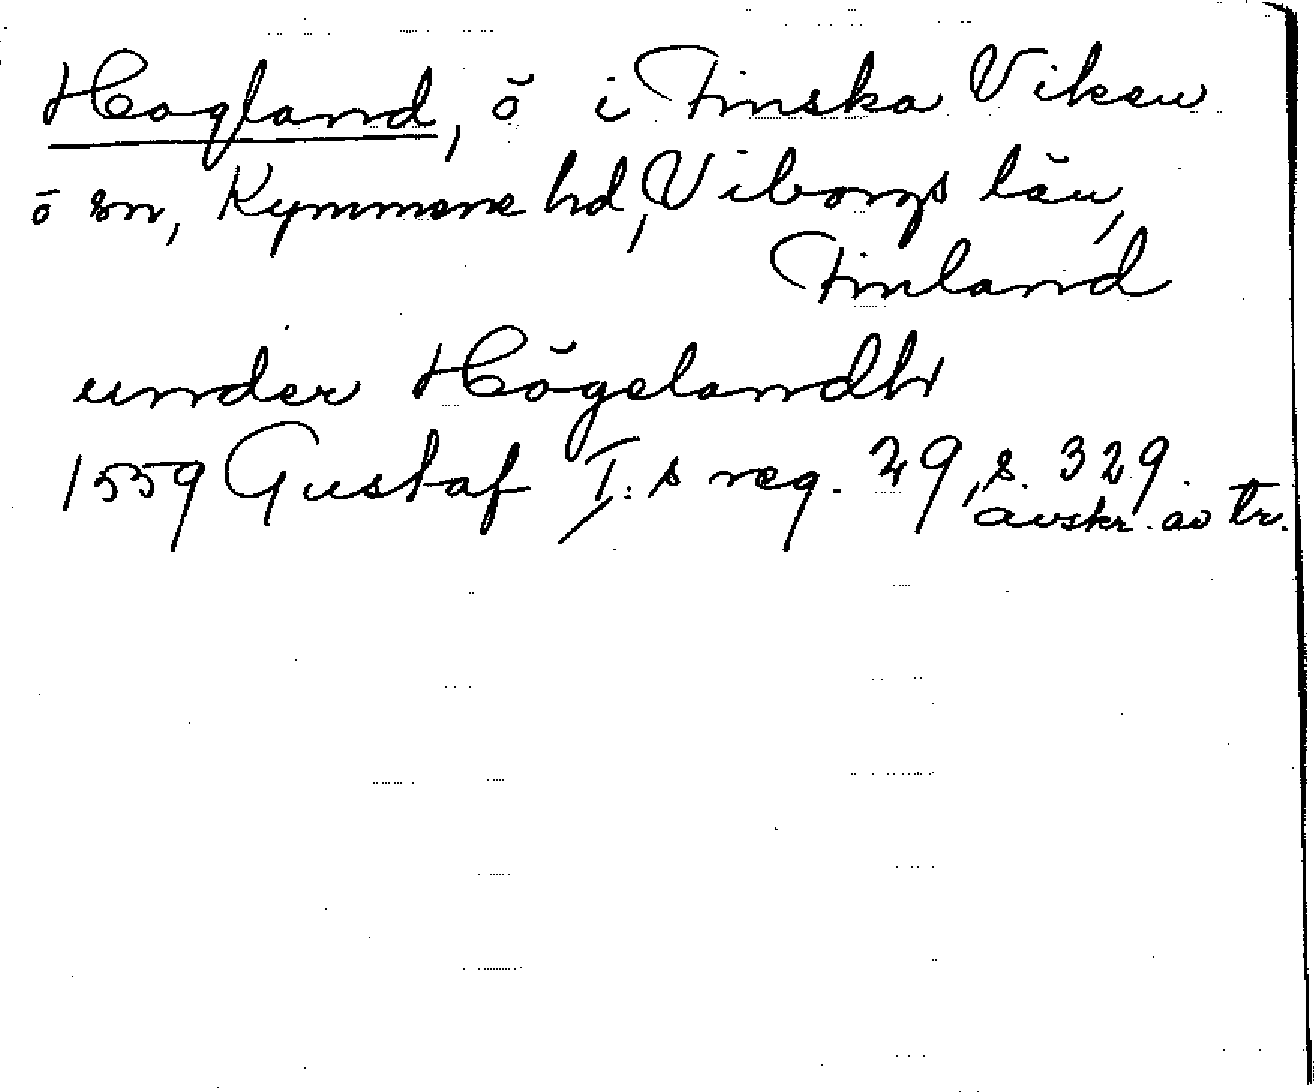 Hogland, ö i Finska Viken
ö sn, Kymmene hd, Viborgs län,
Finland
under Högelandh
1559 Gustaf I:s reg. 29, s. 329.
avskr. av tr.